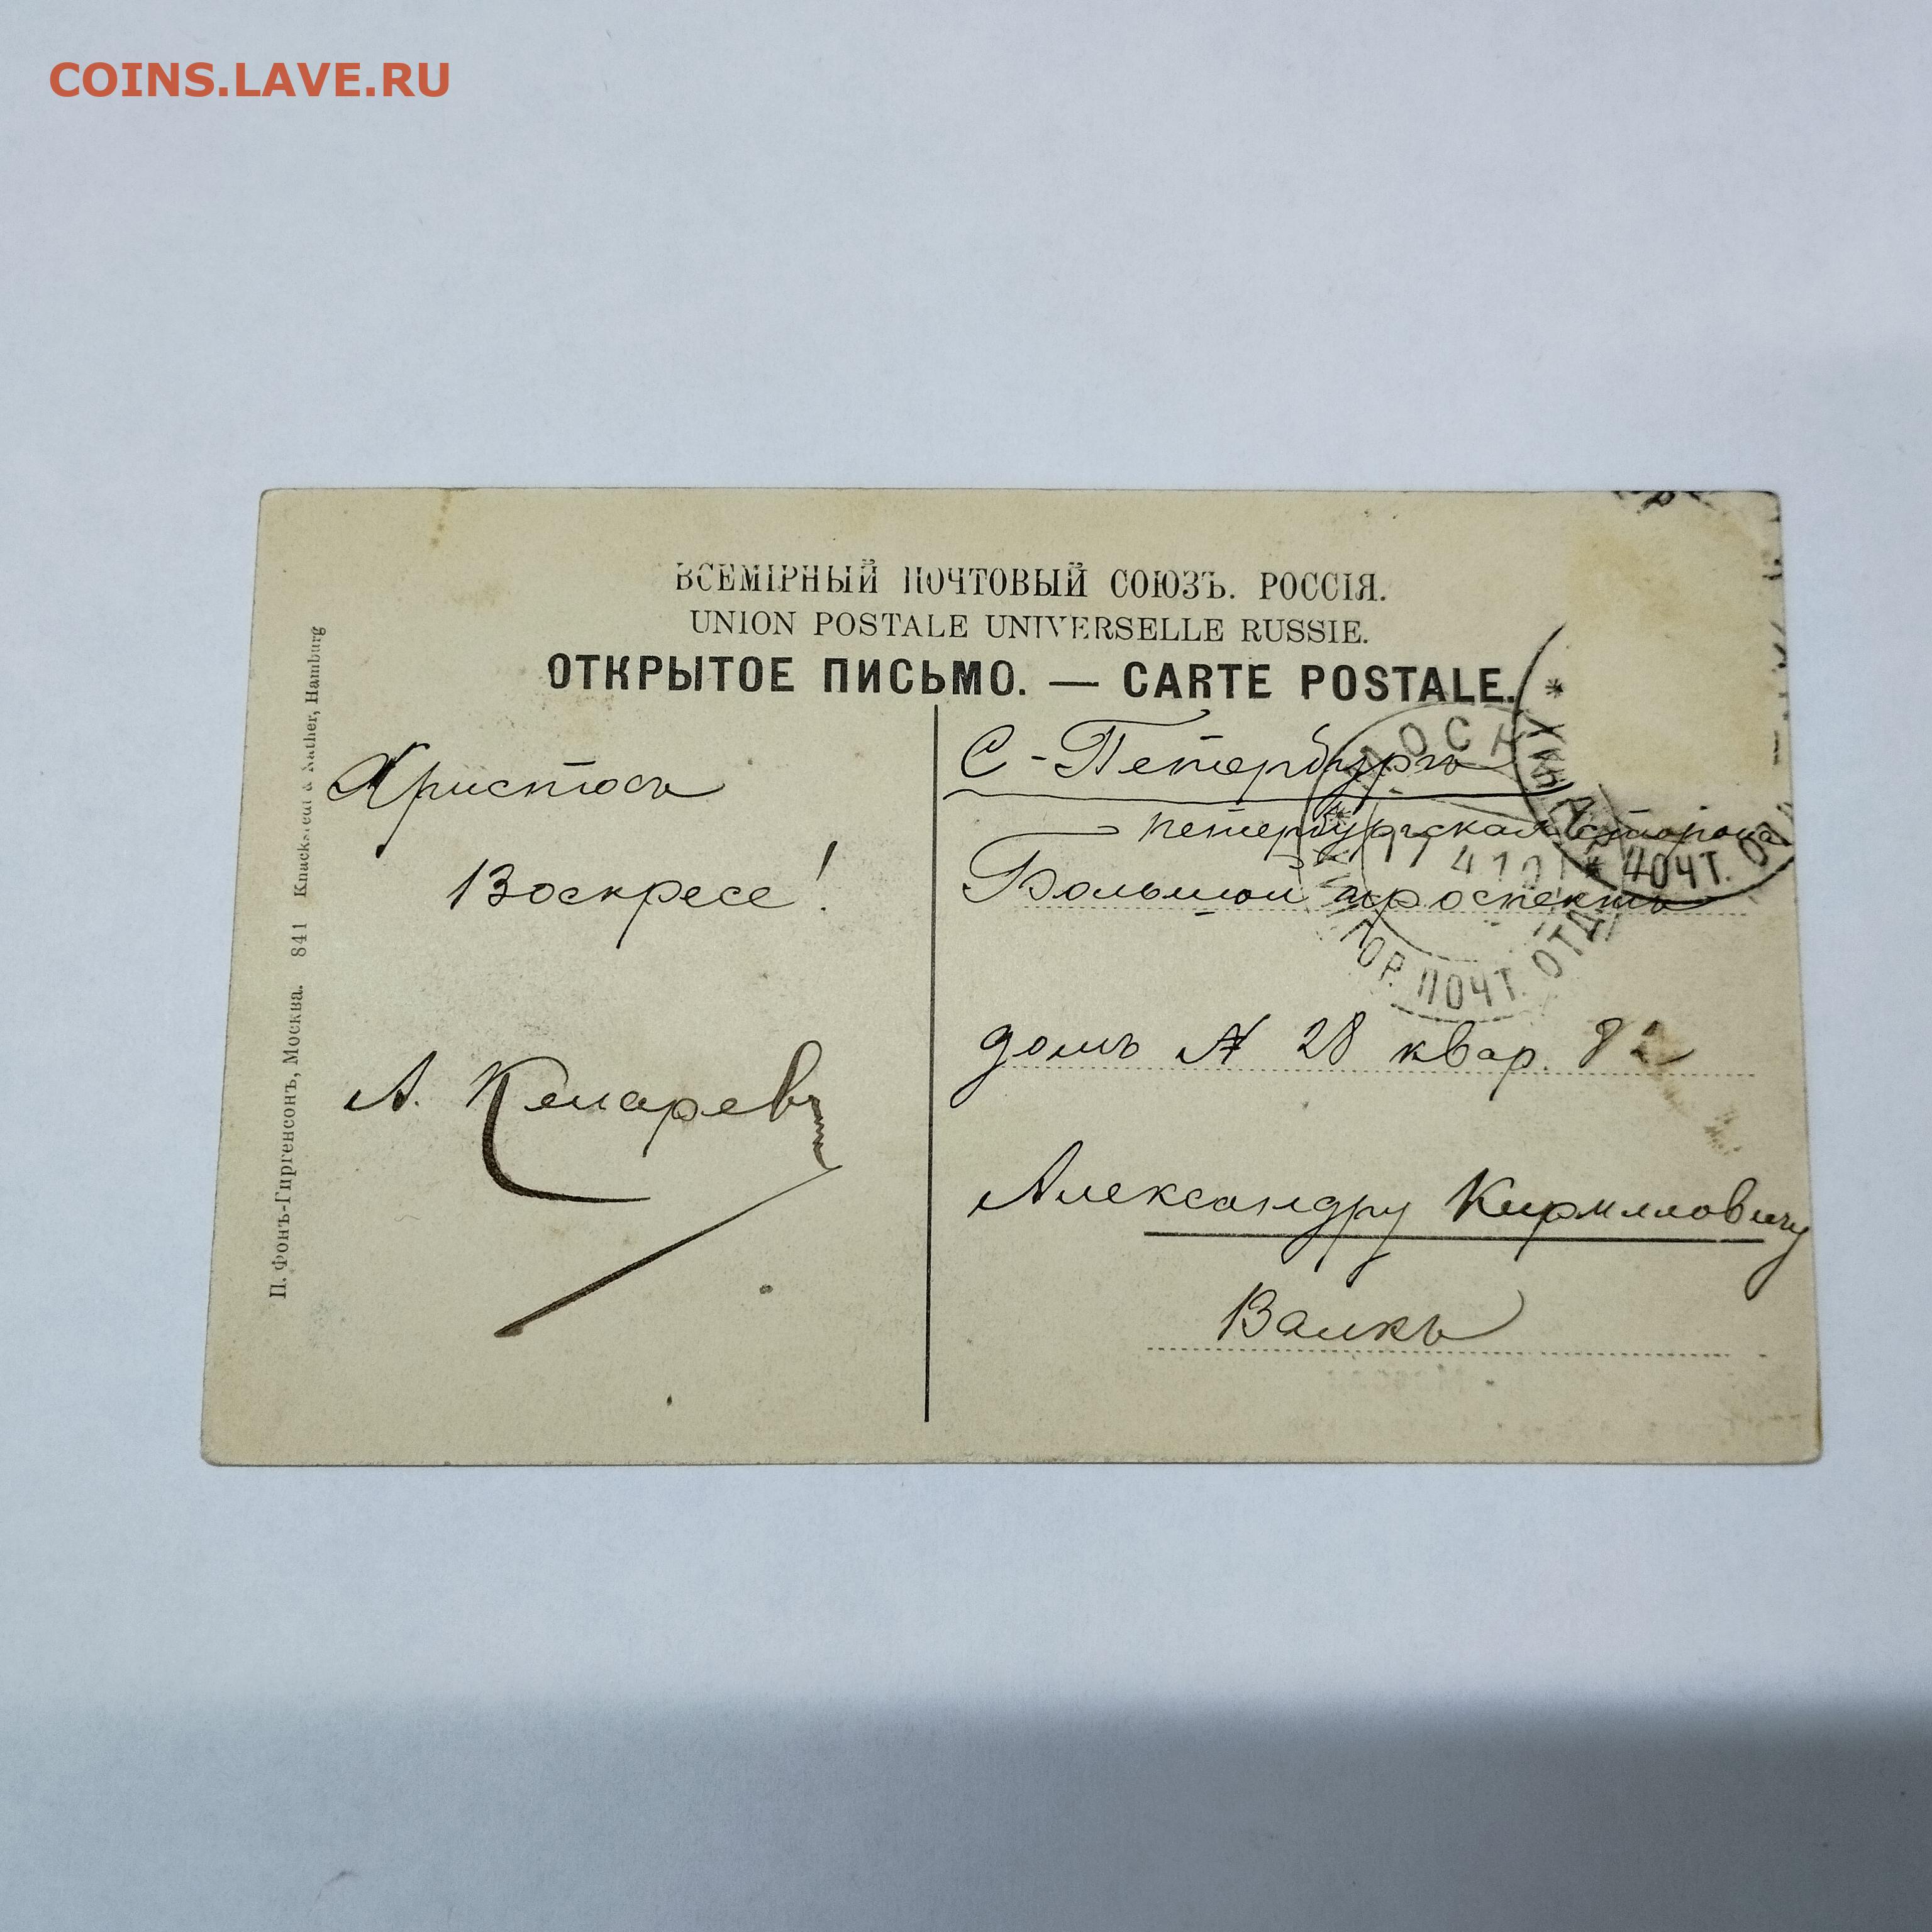 COINS.LAVE.RU
ВСЕМІРНЫЙ ПОЧТОВЫЙ СОЮЗЪ. РОССІЯ.
UNION POSTALE UNIVERSELLE RUSSIE.
ОТКРЫТОЕ ПИСЬМО. — CARTE POSTALE.
П. Фонъ-Гиргенсонъ, Москва. 841 Knackstedt & Näther, Hamburg
Христосъ
Воскресе!
А.
С-Петербургъ
петербургская сторона
Большой проспектъ
домъ № 28 квар. 82
Александру Кирилловичу
Валкъ
МОСК
4 10
ГОР. ПОЧТ. ОТД.
ПОЧТ.